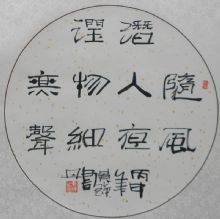 隨風
潛入夜
潤物細
無聲